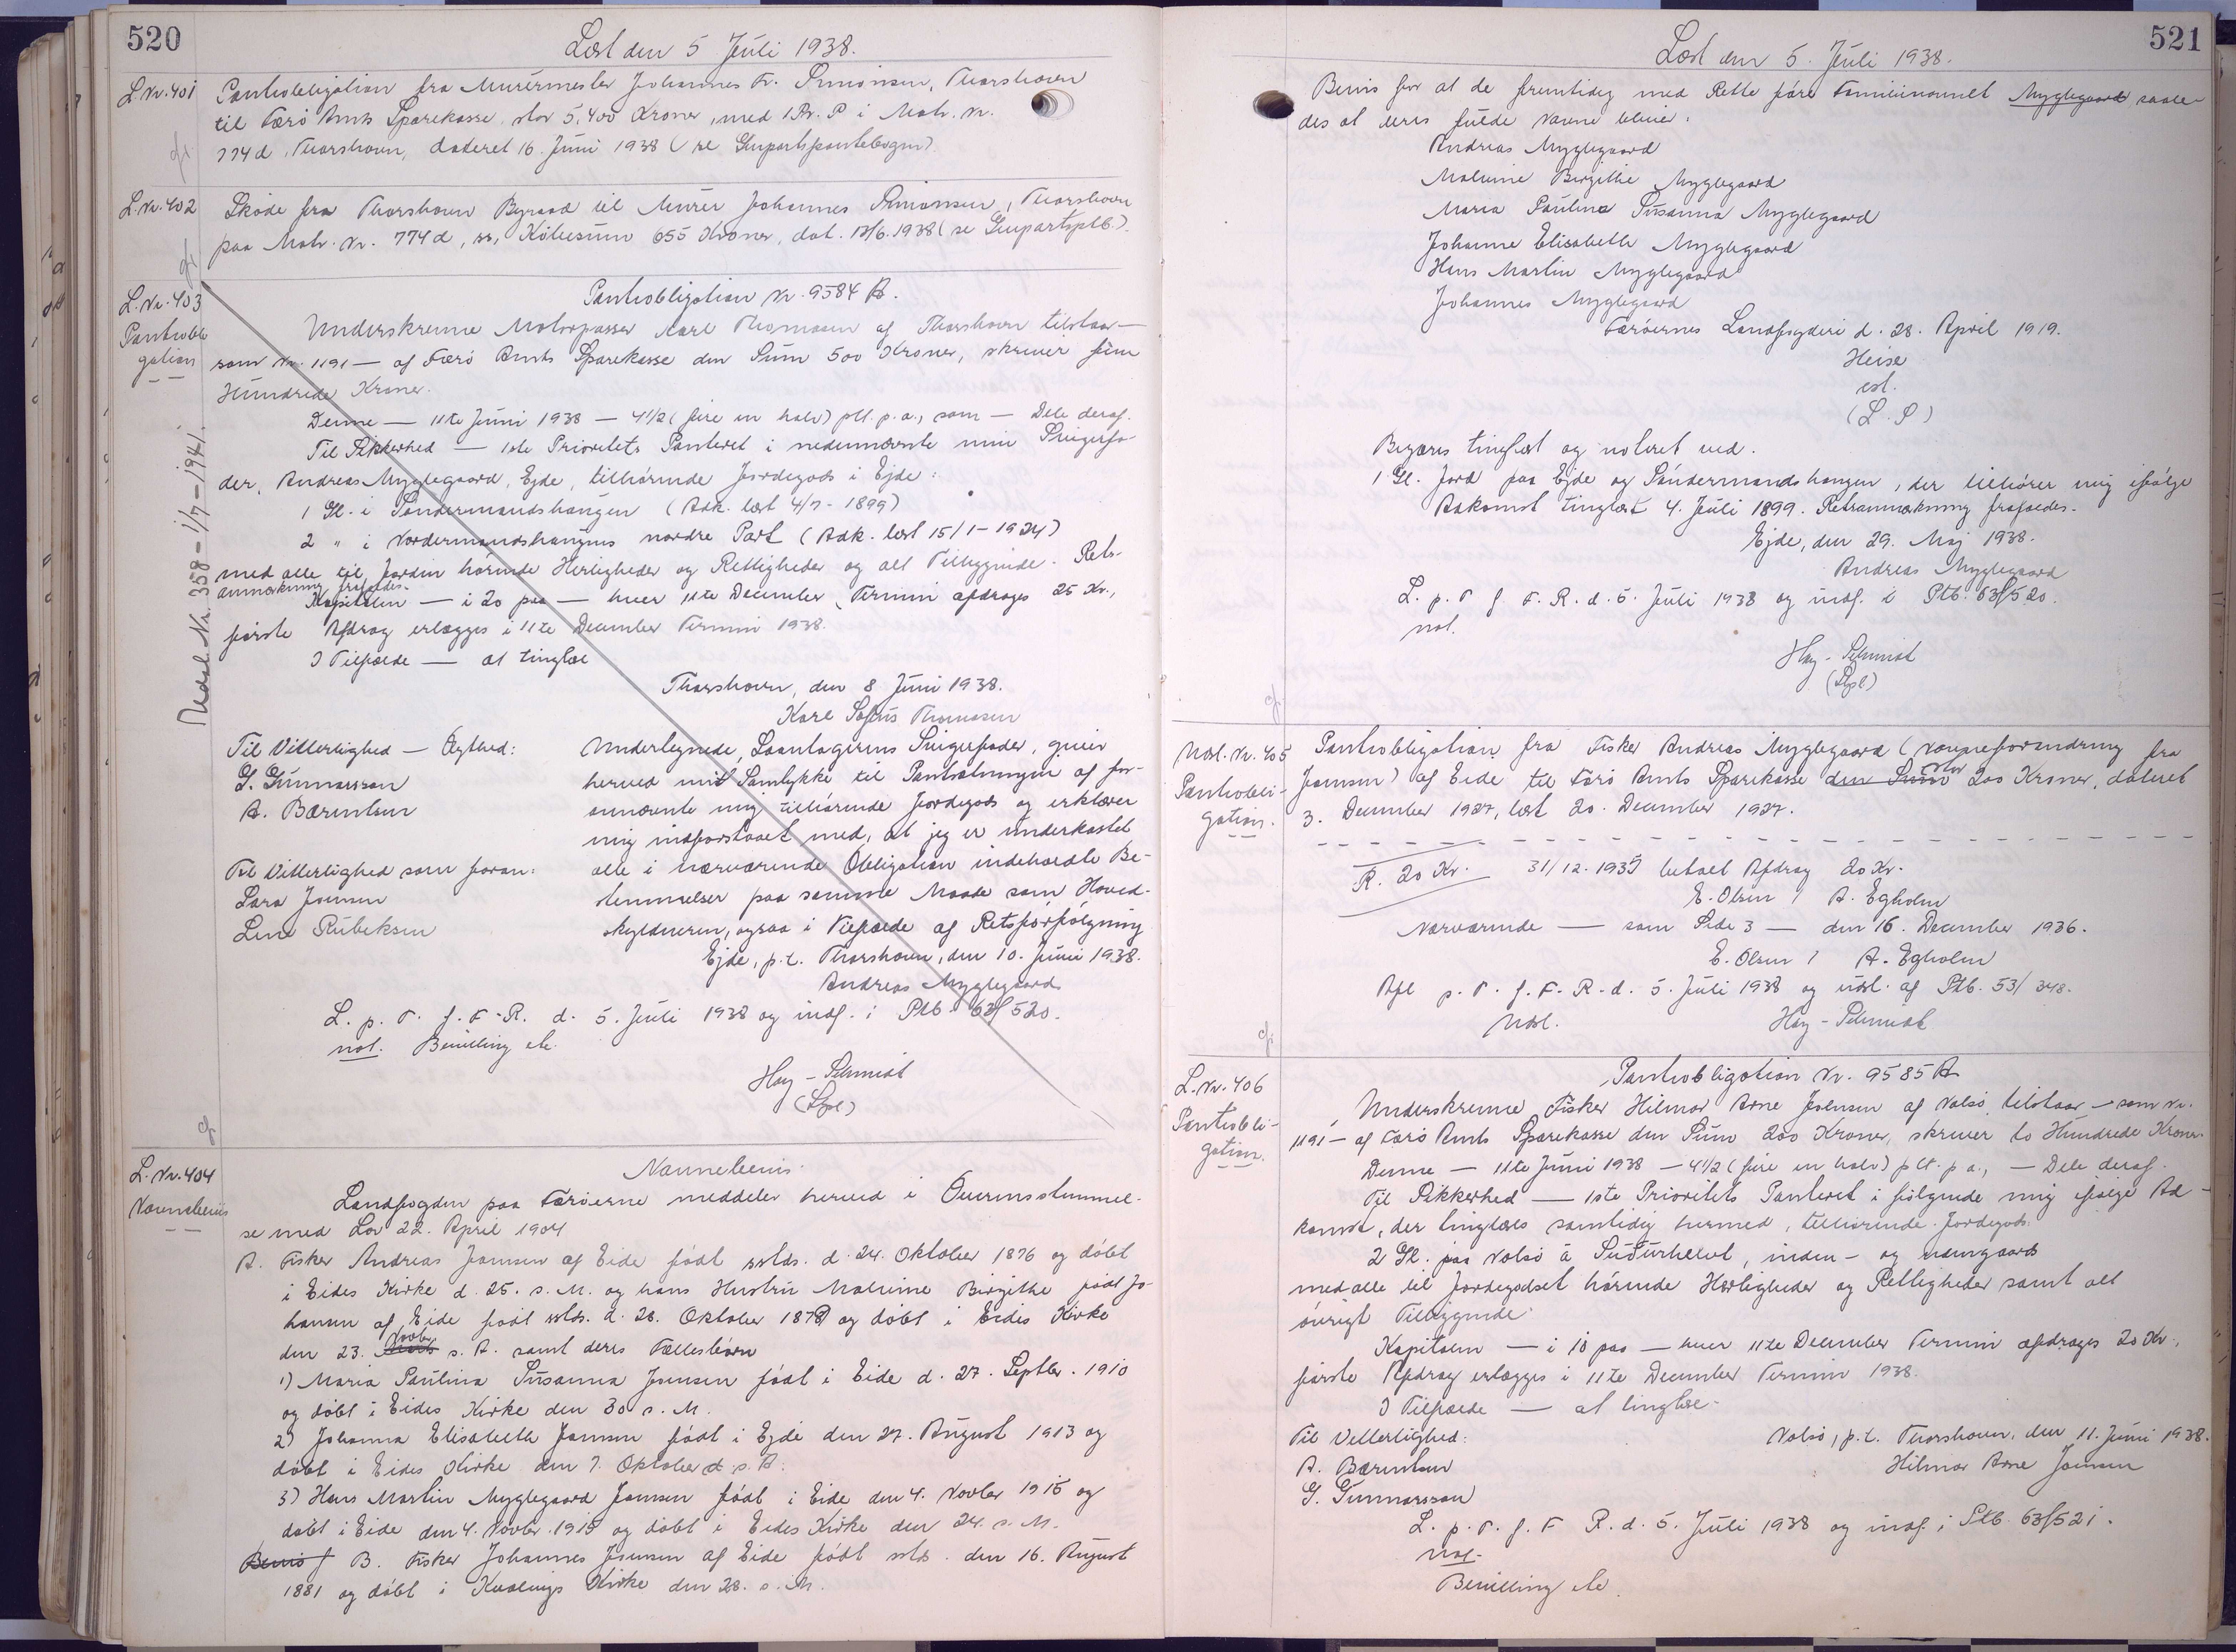 520
Læst den 5 Juli 1938.
L.Nr. 401
Pantobligation fra Murermester Johannes Fr. Simonsen, Thorshavn
til Færø Amts Sparekasse, stor 5,400 Kroner, med 1 Pr. P i Matr. Nr.
774d, Thorshavn, dateret 16. Juni 1938 (se Genpartspantebogen).
L.Nr. 402
Skøde fra Thorshavn Byraad til Murer Johannes Simonsen, Thorshavn
paa Matr. Nr. 774d, Købesum 655 Kroner, dat. 13/6.1938 (se Genpartsptb.).
L.Nr. 403
Pantobli-
gation
Pantobligation Nr. 9584 A.
Underskrevne Motorpasser Karl Thomasen af Thorshavn tilstaar —
som Nr. 1191 — af Færø Amts Sparekasse den Sum 500 Kroner, skriver fem
Hundrede Kroner.
Denne — 11te Juni 1938 — 4 1/2 (fire en halv) pct. p.a., som — Dele deraf.
Til Sikkerhed — 1ste Prioritets Panteret i nedennævnte min Svigerfa-
der, Andreas Mygglegaard, Ejde, tilhørende Jordegods i Ejde:
1 Gl. i Søndermandshangen (Adk. læst 4/7 - 1899)
2 " i Nordermandshangens nordre Part (Adk. læst 15/1 - 1924)
med alle til Jorden hørende Herligheder og Rettigheder og alt Tilliggende. Rets-
anmærkning frafaldes.
Kapitalen — i 20 paa — hver 11te December Termin afdrages 25 Kr.,
første Afdrag erlægges i 11te December Termin 1938.
I Tilfælde — at tinglæse
Thorshavn, den 8 Juni 1938.
Karl Sofus Thomasen
Udsl. Nr. 358 - 1/7 - 1941.
Til Vitterlighed — Ægthed:
G. Gunnarsson
A. Bærentsen
Til Vitterlighed som foran:
Lars Joensen
Lene Rubeksen
Undertegnede, Laantagerens Svigerfader, giver
herved mit Samtykke til Pantsætningen af for-
annævnte mig tilhørende Jordegods og erklærer
mig indforstaaet med, at jeg er underkastet
alle i nærværende Obligation indeholdte Be-
stemmelser paa samme Maade som Hoved-
skyldneren, ogsaa i Tilfælde af Retsforfølgning
Ejde, p.t. Thorshavn, den 10. Juni 1938.
Andreas Mygglegaard
L. p. T. f. F. R. d. 5. Juli 1938 og indf. i Ptb. 63/520.
not. Bevilling etc.
Hay-Schmidt
L.Nr. 404
Navnebevis
Navnebevis.
Landfogden paa Færøerne meddeler herved i Overensstemmel-
se med Lov 22. April 1904
A. Fisker Andreas Joensen af Eide født sstds. d. 24. Oktober 1876 og døbt
i Eides Kirke d. 25. s. M. og hans Hustru Malvine Birgithe født Jo-
hansen af Eide født sstds. d. 28. Oktober 1878 og døbt i Eidis Kirke
den 23. Novbr s. A. samt deres Fællesbørn
1) Maria Paulina Susanna Joensen født i Eide d. 27. Septbr. 1910
og døbt i Eides Kirke den 30 s. M.
2) Johanna Elisabeth Joensen født i Ejde den 27. August 1913 og
døbt i Eides Kirke den 7. Oktober s. A.
3) Hans Martin Mygglegaard Joensen født i Eide den 4. Novbr 1915 og
døbt i Eide den 4. Novbr. 1915 og døbt i Eides Kirke den 24. s. M.
Bevis f B. Fisker Johannes Joensen af Eide født sstds. den 16. August
1881 og døbt i Kvalvigs Kirke den 28. s. M.
521
Læst den 5. Juli 1938.
Bevis for at de fremtidig med Rette føre Familienavnet Mygglegaard saale-
des at deres fulde Navne bliver:
Andreas Mygglegaard
Malvine Birgithe Mygglegaard
Maria Paulina Susanna Mygglegaard
Johanne Elisabeth Mygglegaard
Hans Martin Mygglegaard
Johannes Mygglegaard
Færøernes Landfogderi d. 28. April 1919.
Heise
cst.
(L. S)
Begæres tinglæst og noteret ved.
1 Gl. Jord paa Ejde og Søndermandshangen, der tilhører mig ifølge
Adkomst tinglæst 4. Juli 1899. Retsanmærkning frafaldes.
Ejde, den 29. Maj 1938.
Andreas Mygglegaard
L. p. T f. F. R. d. 5. Juli 1938 og indf. i Ptb. 63/520.
not.
Hay-Schmidt
Udsl. Nr. 405
Pantobli-
gation.
Pantobligation fra Fisker Andreas Mygglegaard (Navneforandring fra
Joensen) af Eide til Færø Amts Sparekasse den Sum stor 200 Kroner, dateret
3. December 1927, læst 20. December 1927.
R. 20 Kr. 31/12.1935 betalt Afdrag 20 Kr.
E. Olsen / A. Egholm
Nærværende — som Side 3 — den 16. December 1936.
E. Olsen / A. Egholm
Afl p. T. f. F. R. d. 5. Juli 1938 og udsl. af Ptb. 53/348.
Udsl.
Hay-Schmidt
L.Nr. 406
Pantobli-
gation.
Pantobligation Nr. 9585 A
Underskrevne Fisker Hilmar Arne Joensen af Nolsø tilstaar — som Nr.
1191 — af Færø Amts Sparekasse den Sum 200 Kroner, skriver to Hundrede Kroner
Denne — 11te Juni 1938 — 4 1/2 (fire en halv) pct. p a., — Dele deraf.
Til Sikkerhed — 1ste Prioritets Panteret i følgende mig ifølge Ad-
komst, der tinglæses samtidig hermed, tilhørende Jordegods
2 Gl. paa Nolsø, inden- og udengaards
med alle til Jordegodset hørende Herligheder og Rettigheder samt alt
øvrigt Tilliggende
Kapitalen — i 10 paa — hver 11te December Termin afdrages 20 Kr.,
første Afdrag erlægges i 11te December Termin 1938.
I Tilfælde — at tinglæse.
Til Vitterlighed:
A. Bærentsen
G. Gunnarsson
Nolsø, p.t. Thorshavn, den 11. Juni 1938.
Hilmar Arne Joensen
L. p. T. f. F R. d. 5. Juli 1938 og indf. i Ptb. 63/521.
not.
Bevilling etc.